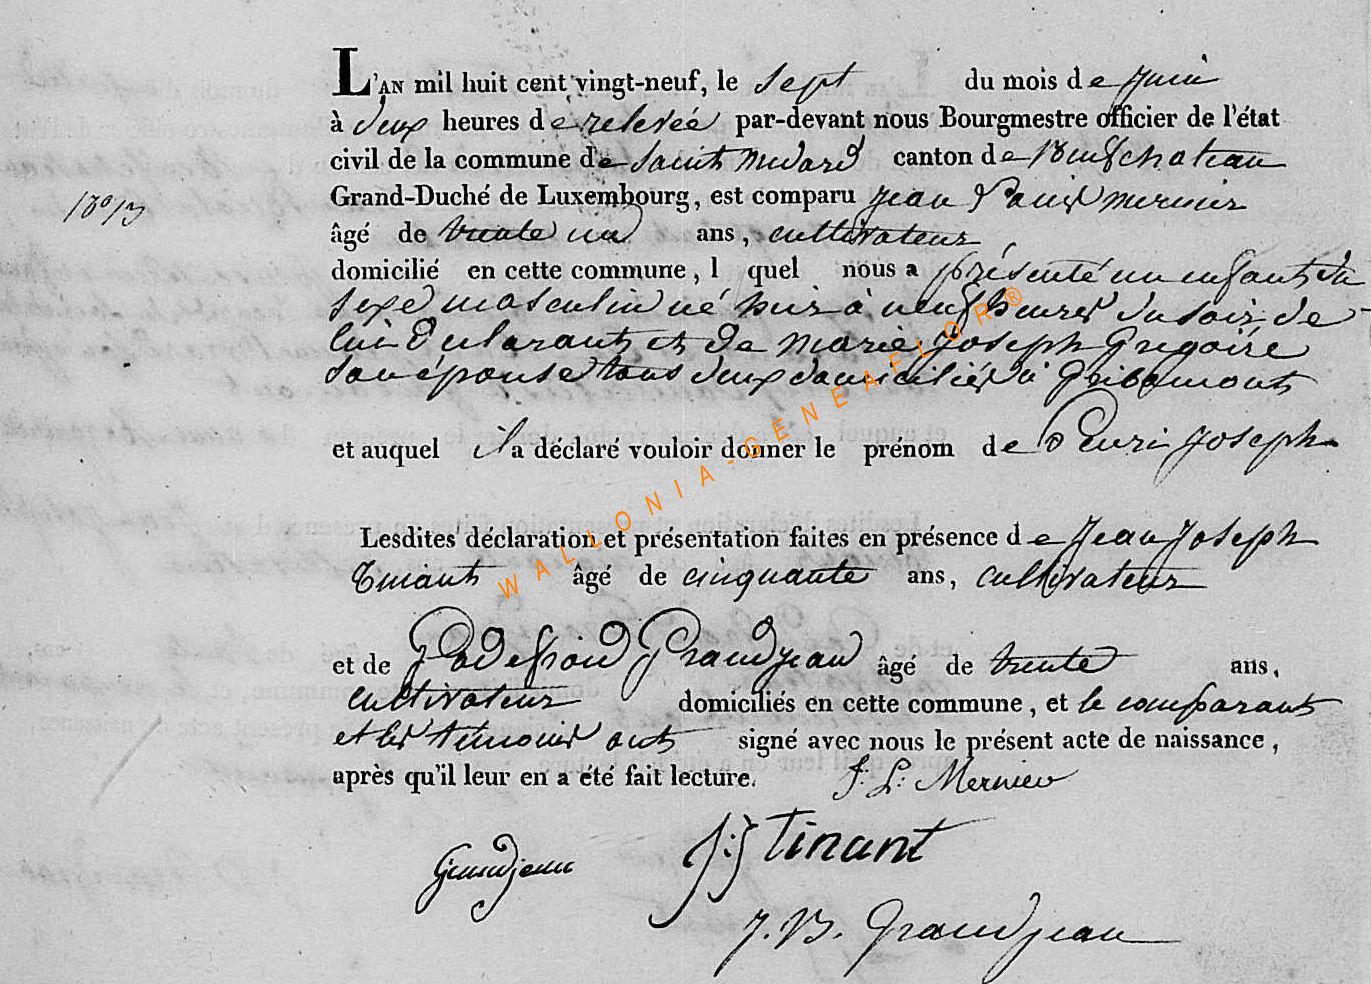 L'AN mil huit cent vingt-neuf, le sept du mois de juin
à deux heures de relevée par-devant nous Bourgmestre officier de l'état
civil de la commune de Saint medard canton de Neufchateau
Grand-Duché de Luxembourg, est comparu jean Louis mernier
âgé de trente un ans, cultivateur,
domicilié en cette commune, l quel nous a présenté un enfant du
sexe masculin né hier à neuf heures du soir de
lui declarant et de marie joseph Grégoire
son épouse tous deux domiciliés à Gribomont
et auquel il a déclaré vouloir donner le prénom de Henri joseph
Lesdites déclaration et présentation faites en présence de jean joseph
Tinant âgé de cinquante ans, cultivateur
et de Godefroid Grandjean âgé de trente ans,
cultivateur domiciliés en cette commune, et le comparant
et les témoins ont signé avec nous le présent acte de naissance,
après qu'il leur en a été fait lecture. J: L: Mernier
Grandjean J: J Tinant
J. B. Grandjean
WALLONIA-GENEAFLOR®